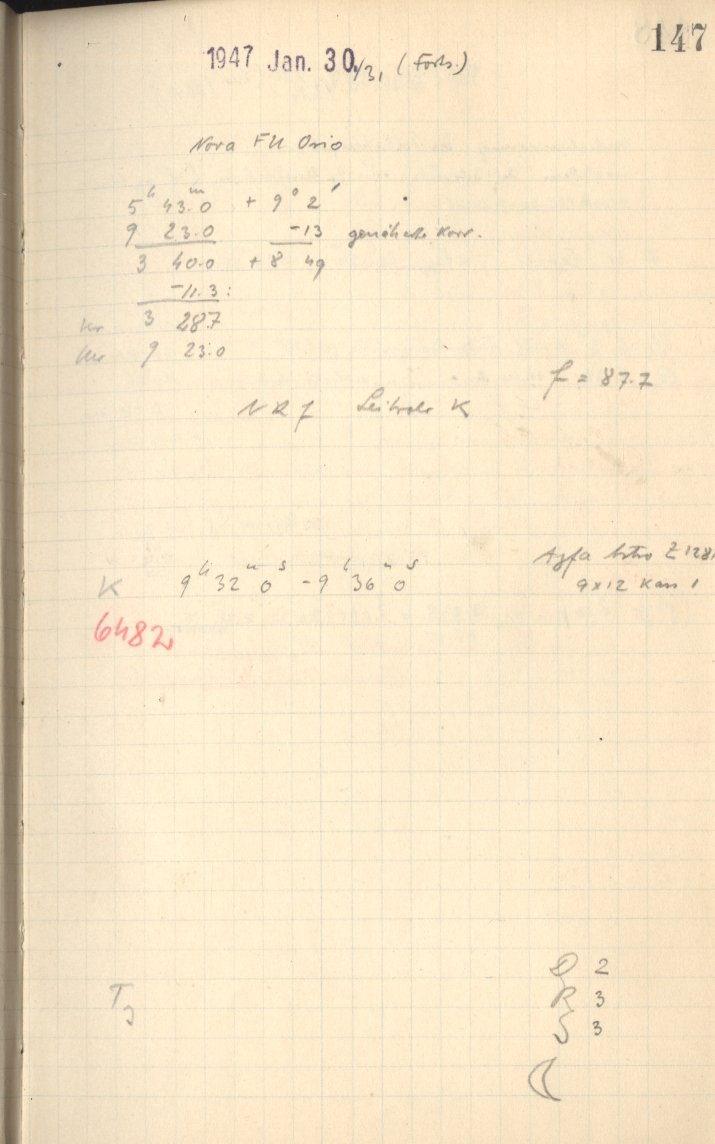 147
1947 Jan. 30./31, (Forts.)
Nova FU Orio
5ʰ 43ᵐ.0 + 9° 2′
9 23.0 -13 genäherte Korr.
3 40.0 + 8 49
-11.3:
3 28.7
9 23.0
f = 87.7
Leitrohr K
K 9ʰ 32ᵐ 0ˢ - 9ʰ 36ᵐ 0ˢ
Agfa Astro Z 1281
9x12 Kass 1
6482
D 2
R 3
S 3
T